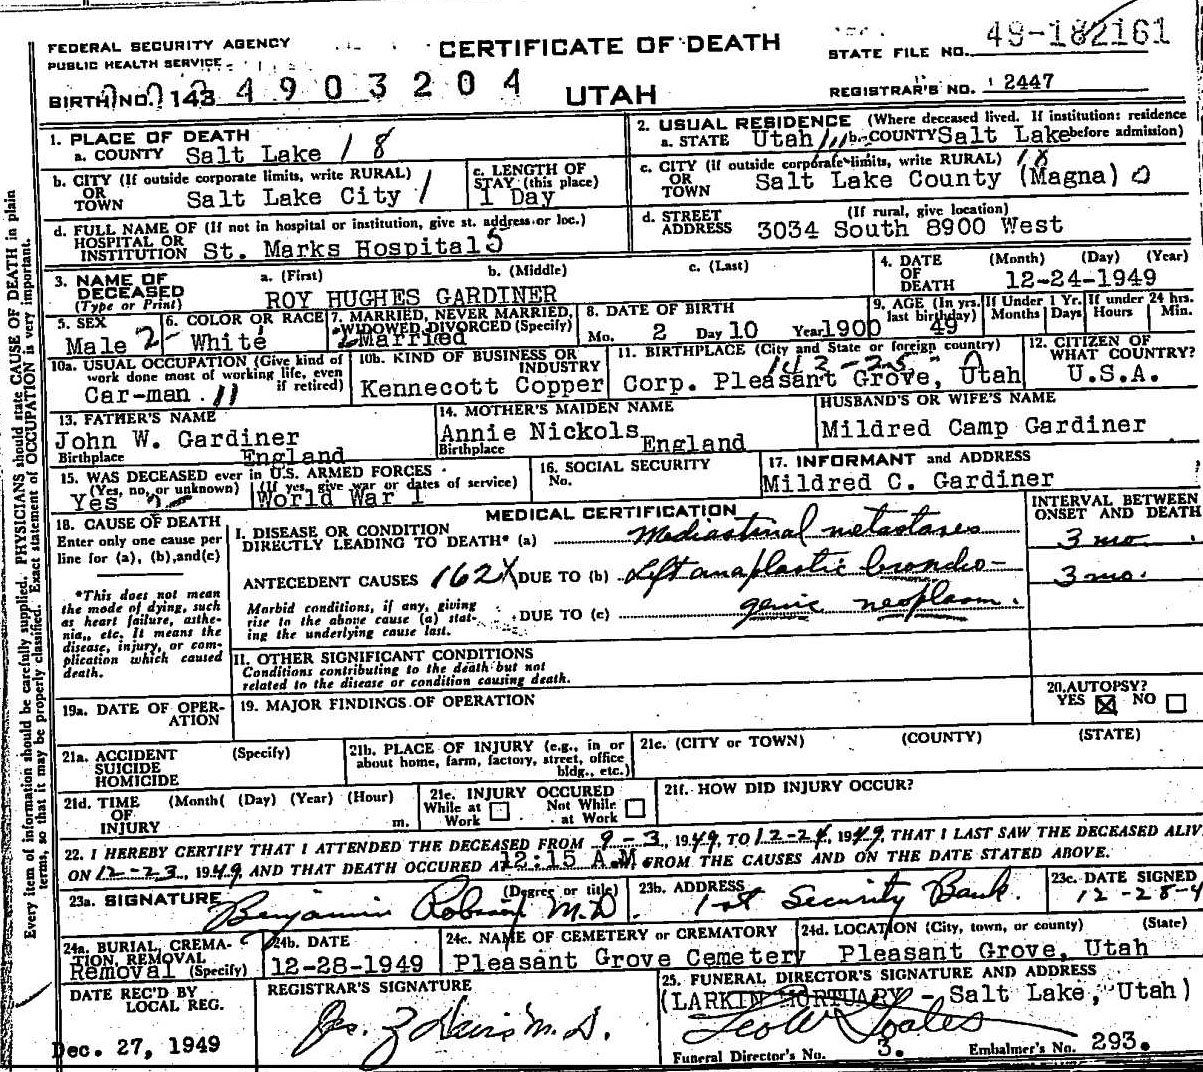 FEDERAL SECURITY AGENCY
PUBLIC HEALTH SERVICE
CERTIFICATE OF DEATH
STATE FILE NO. 49-182161
BIRTH NO. 143 4903204
UTAH
REGISTRAR'S NO. 2447
1. PLACE OF DEATH
a. COUNTY Salt Lake 18
2. USUAL RESIDENCE (Where deceased lived. If institution: residence before admission)
a. STATE Utah b. COUNTY Salt Lake
b. CITY (If outside corporate limits, write RURAL) OR TOWN Salt Lake City 1
c. LENGTH OF STAY (this place) 1 Day
c. CITY (If outside corporate limits, write RURAL) 18
OR TOWN Salt Lake County (Magna) 0
d. FULL NAME OF (If not in hospital or institution, give st. address or loc.)
HOSPITAL OR INSTITUTION St. Marks Hospital 5
d. STREET ADDRESS (If rural, give location)
3034 South 8900 West
3. NAME OF DECEASED (Type or Print)
a. (First) b. (Middle) c. (Last)
ROY HUGHES GARDINER
4. DATE OF DEATH (Month) (Day) (Year)
12-24-1949
5. SEX Male 2
6. COLOR OR RACE White
7. MARRIED, NEVER MARRIED, WIDOWED, DIVORCED (Specify) Married
8. DATE OF BIRTH
Mo. 2 Day 10 Year 1900
9. AGE (In yrs. last birthday) 49
If Under 1 Yr. Months Days
If under 24 hrs. Hours Min.
10a. USUAL OCCUPATION (Give kind of work done most of working life, even if retired)
Car-man 11
10b. KIND OF BUSINESS OR INDUSTRY
Kennecott Copper Corp.
11. BIRTHPLACE (City and State or foreign country)
Pleasant Grove, Utah
12. CITIZEN OF WHAT COUNTRY?
U.S.A.
13. FATHER'S NAME
John W. Gardiner
Birthplace England
14. MOTHER'S MAIDEN NAME
Annie Nickols
Birthplace England
HUSBAND'S OR WIFE'S NAME
Mildred Camp Gardiner
15. WAS DECEASED ever in U.S. ARMED FORCES
(Yes, no, or unknown) (If yes, give war or dates of service)
Yes World War 1
16. SOCIAL SECURITY No.
17. INFORMANT and ADDRESS
Mildred C. Gardiner
18. CAUSE OF DEATH
Enter only one cause per line for (a), (b), and (c)
*This does not mean the mode of dying, such as heart failure, asthenia, etc. It means the disease, injury, or complication which caused death.
MEDICAL CERTIFICATION
INTERVAL BETWEEN ONSET AND DEATH
I. DISEASE OR CONDITION DIRECTLY LEADING TO DEATH* (a) Mediastinal metastases 3 mo.
ANTECEDENT CAUSES 162X DUE TO (b) Left anaplastic broncho- 3 mo.
Morbid conditions, if any, giving rise to the above cause (a) stating the underlying cause last.
DUE TO (c) genic neoplasm.
II. OTHER SIGNIFICANT CONDITIONS
Conditions contributing to the death but not related to the disease or condition causing death.
19a. DATE OF OPERATION
19. MAJOR FINDINGS OF OPERATION
20. AUTOPSY?
YES ☒ NO ☐
21a. ACCIDENT SUICIDE HOMICIDE (Specify)
21b. PLACE OF INJURY (e.g., in or about home, farm, factory, street, office bldg., etc.)
21c. (CITY or TOWN) (COUNTY) (STATE)
21d. TIME OF INJURY (Month( (Day) (Year) (Hour) m.
21e. INJURY OCCURED
While at Work ☐ Not While at Work ☐
21f. HOW DID INJURY OCCUR?
22. I HEREBY CERTIFY THAT I ATTENDED THE DECEASED FROM 9-3, 1949, TO 12-24, 1949, THAT I LAST SAW THE DECEASED ALIVE
ON 12-23, 1949, AND THAT DEATH OCCURED AT 12:15 A.M. FROM THE CAUSES AND ON THE DATE STATED ABOVE.
23a. SIGNATURE (Degree or title)
Benjamin M.D.
23b. ADDRESS
1st Security Bank.
23c. DATE SIGNED
12-28-4
24a. BURIAL, CREMATION, REMOVAL (Specify)
Removal
24b. DATE
12-28-1949
24c. NAME OF CEMETERY or CREMATORY
Pleasant Grove Cemetery
24d. LOCATION (City, town, or county) (State)
Pleasant Grove, Utah
DATE REC'D BY LOCAL REG.
Dec. 27, 1949
REGISTRAR'S SIGNATURE
M.D.
25. FUNERAL DIRECTOR'S SIGNATURE AND ADDRESS
(LARKIN MORTUARY - Salt Lake, Utah)
Funeral Director's No. 3. Embalmer's No. 293.
Every item of information should be carefully supplied. PHYSICIANS should state CAUSE OF DEATH in plain
terms, so that it may be properly classified. Exact statement of OCCUPATION is very important.